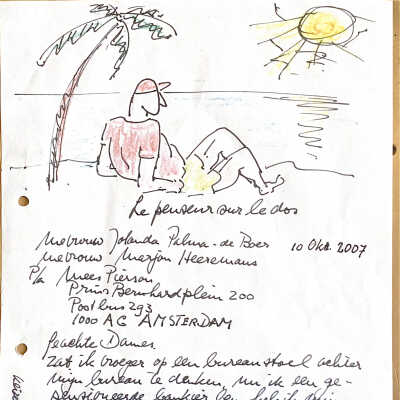 Le penseur sur le dos
Mevrouw Jolanda Palma-de Boer 10 Okt. 2007
Mevrouw Marjon Heeremans
P/a Mees Pierson
Prins Bernhardplein 200
Postbus 293
1000 AG AMSTERDAM
Geachte Dames
Zat ik vroeger op een bureaustoel achter
mijn bureau te denken, nu ik een ge-
pensioneerde bankier ben heb ik